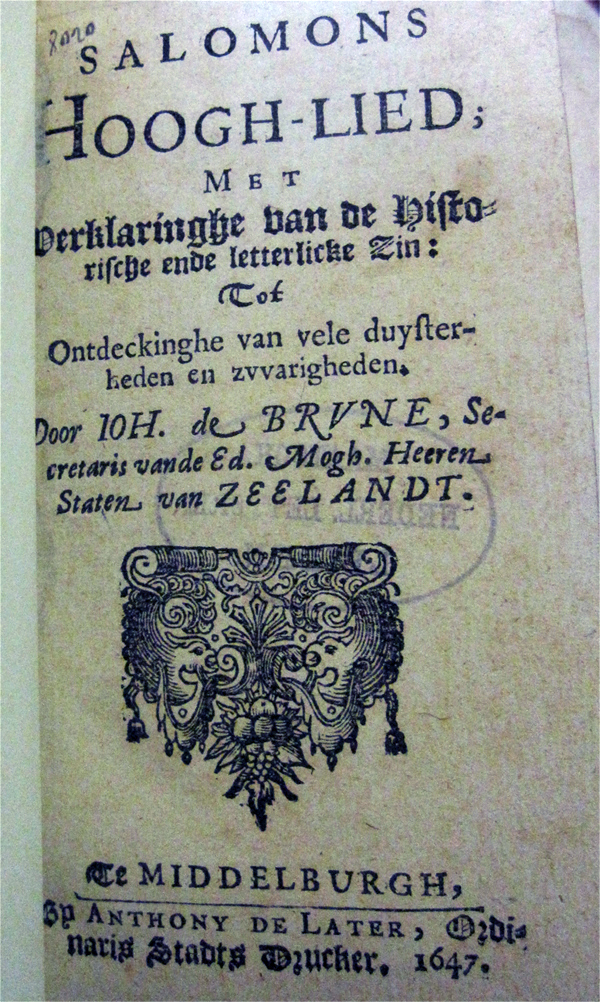 SALOMONS
HOOGH-LIED;
MET
Verklaringhe van de Histo-
rische ende letterlicke Zin:
Tot
Ontdeckinghe van vele duyſter-
heden en zvvarigheden.
Door IOH. de BRVNE, Se-
cretaris vande Ed. Mogh. Heeren
Staten van ZEELANDT.
Te MIDDELBURGH,
By ANTHONY DE LATER, Ordi-
naris Stadts Drucker. 1647.